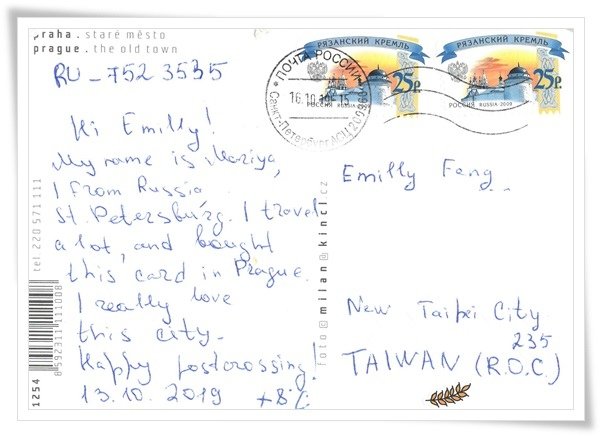 praha . staré město
prague . the old town
RU-752 3535
Hi Emilly!
My name is Mariya,
I from Russia
St. Petersburg. I travel
a lot, and bought
this card in Prague.
I really love
this city.
Happy postcrossing!
13.10.2019 +8°C
РЯЗАНСКИЙ КРЕМЛЬ
25р.
РОССИЯ RUSSIA
РЯЗАНСКИЙ КРЕМЛЬ
25р.
РОССИЯ RUSSIA·2009
ПОЧТА РОССИИ
16.10.19
Санкт-Петербург АСЦ
Emilly Fang
New Taipei City
235
TAIWAN (R.O.C.)
tel 220 571 111
8 592311 111008
1254
foto © milan@kincl.cz